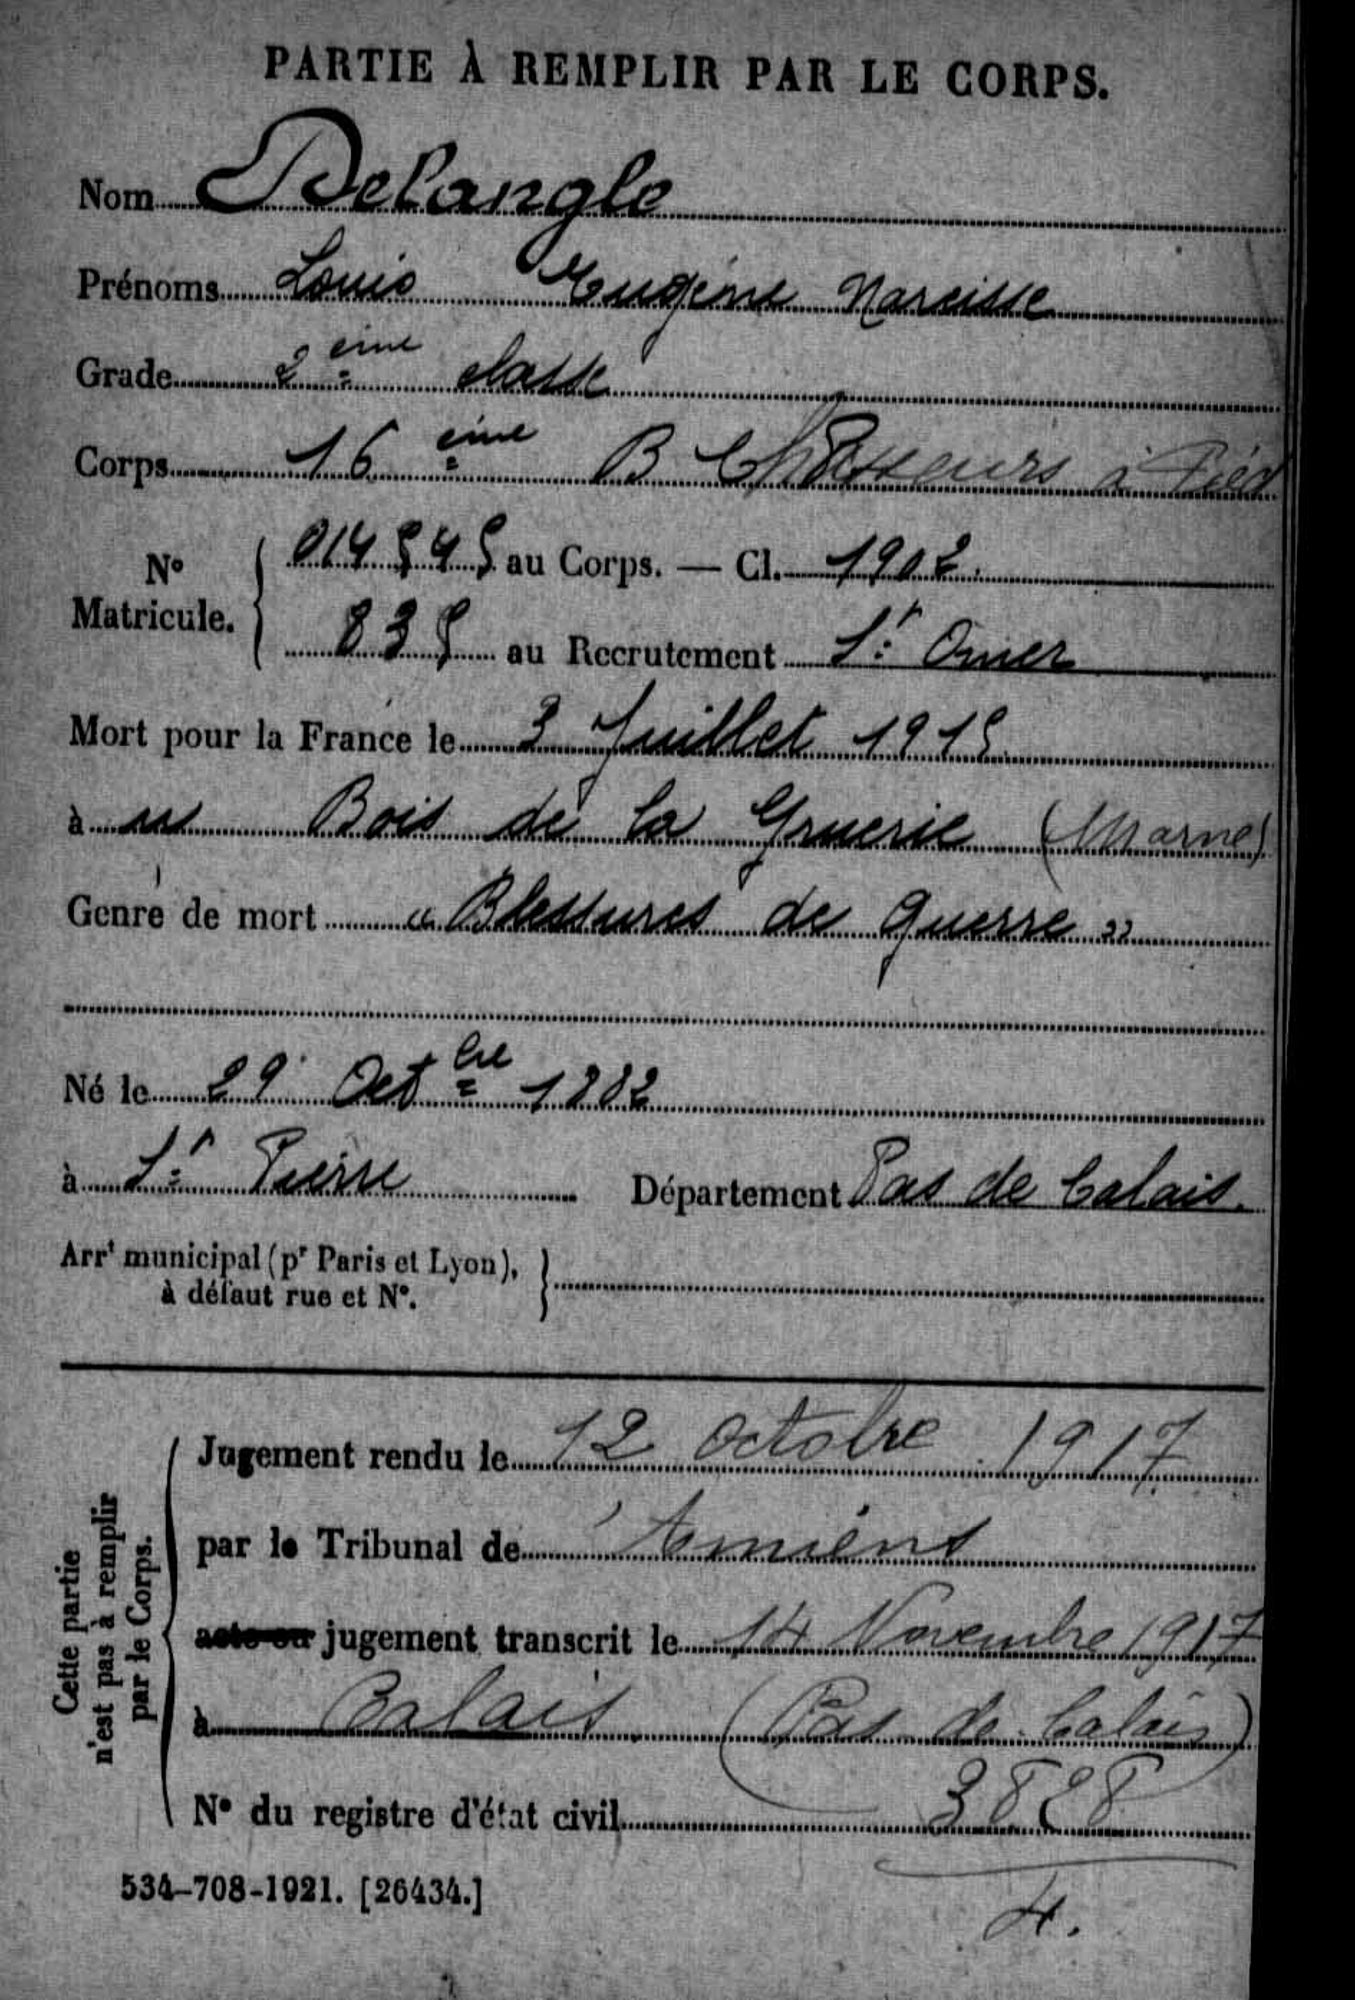 PARTIE À REMPLIR PAR LE CORPS.
Nom Delangle
Prénoms Louis Eugène Narcisse
Grade 2 ème classe
Corps 16 ème B Chasseurs à Pied
N° Matricule. 014545 au Corps. — Cl. 1902.
835 au Recrutement St Omer
Mort pour la France le 3 Juillet 1915
à Bois de la Gruerie (Marne)
Genre de mort « Blessures de guerre »
Né le 29 Octbre 1882
à St Pierre Département Pas de Calais.
Arrt municipal (pr Paris et Lyon),
à défaut rue et N°.
Cette partie
n'est pas à remplir
par le Corps.
Jugement rendu le 12 octobre 1917
par le Tribunal de Amiens
acte ou jugement transcrit le 14 Novembre 1917
à Calais (Pas de Calais)
N° du registre d'état civil 3828
534-708-1921. [26434.]